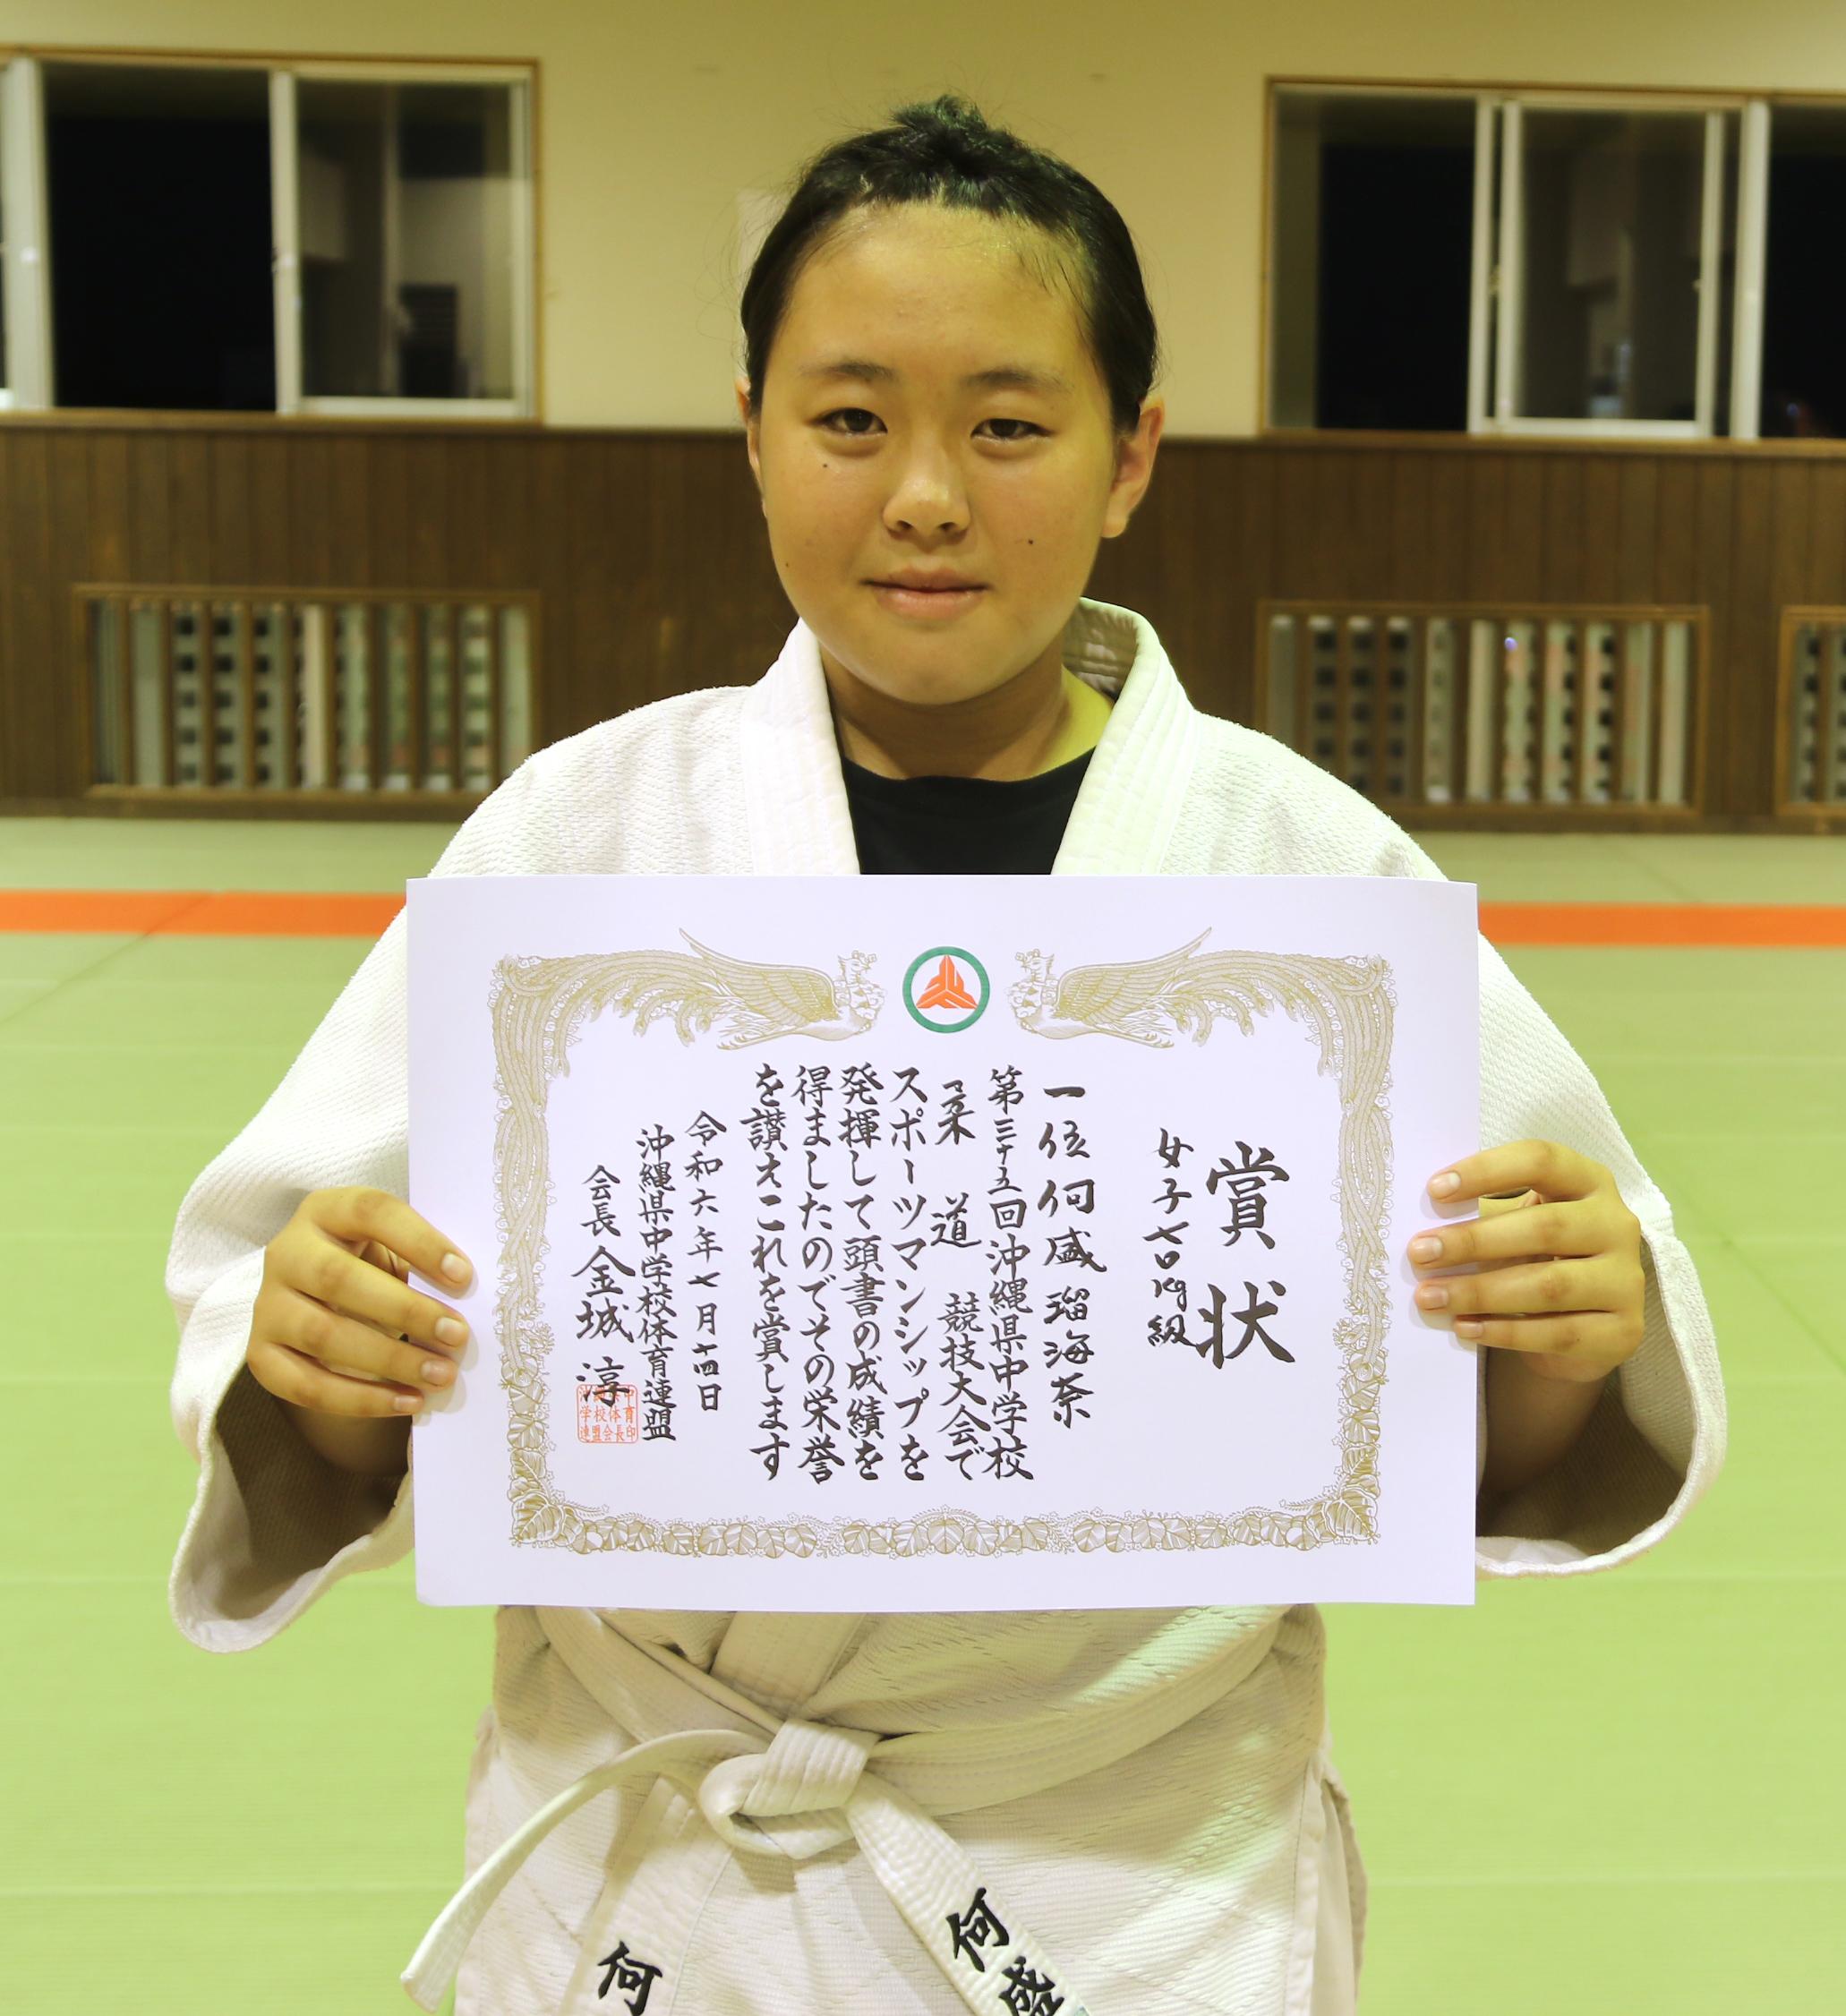 賞状
女子七〇kg級
一位 何盛瑠海奈
第三十五回沖縄県中学校
柔道 競技大会で
スポーツマンシップを
発揮して頭書の成績を
得ましたのでその栄誉
を讃えこれを賞します
令和六年七月十四日
沖縄県中学校体育連盟
会長 金城 淳
中育印
学校体
連盟会長
何盛
何